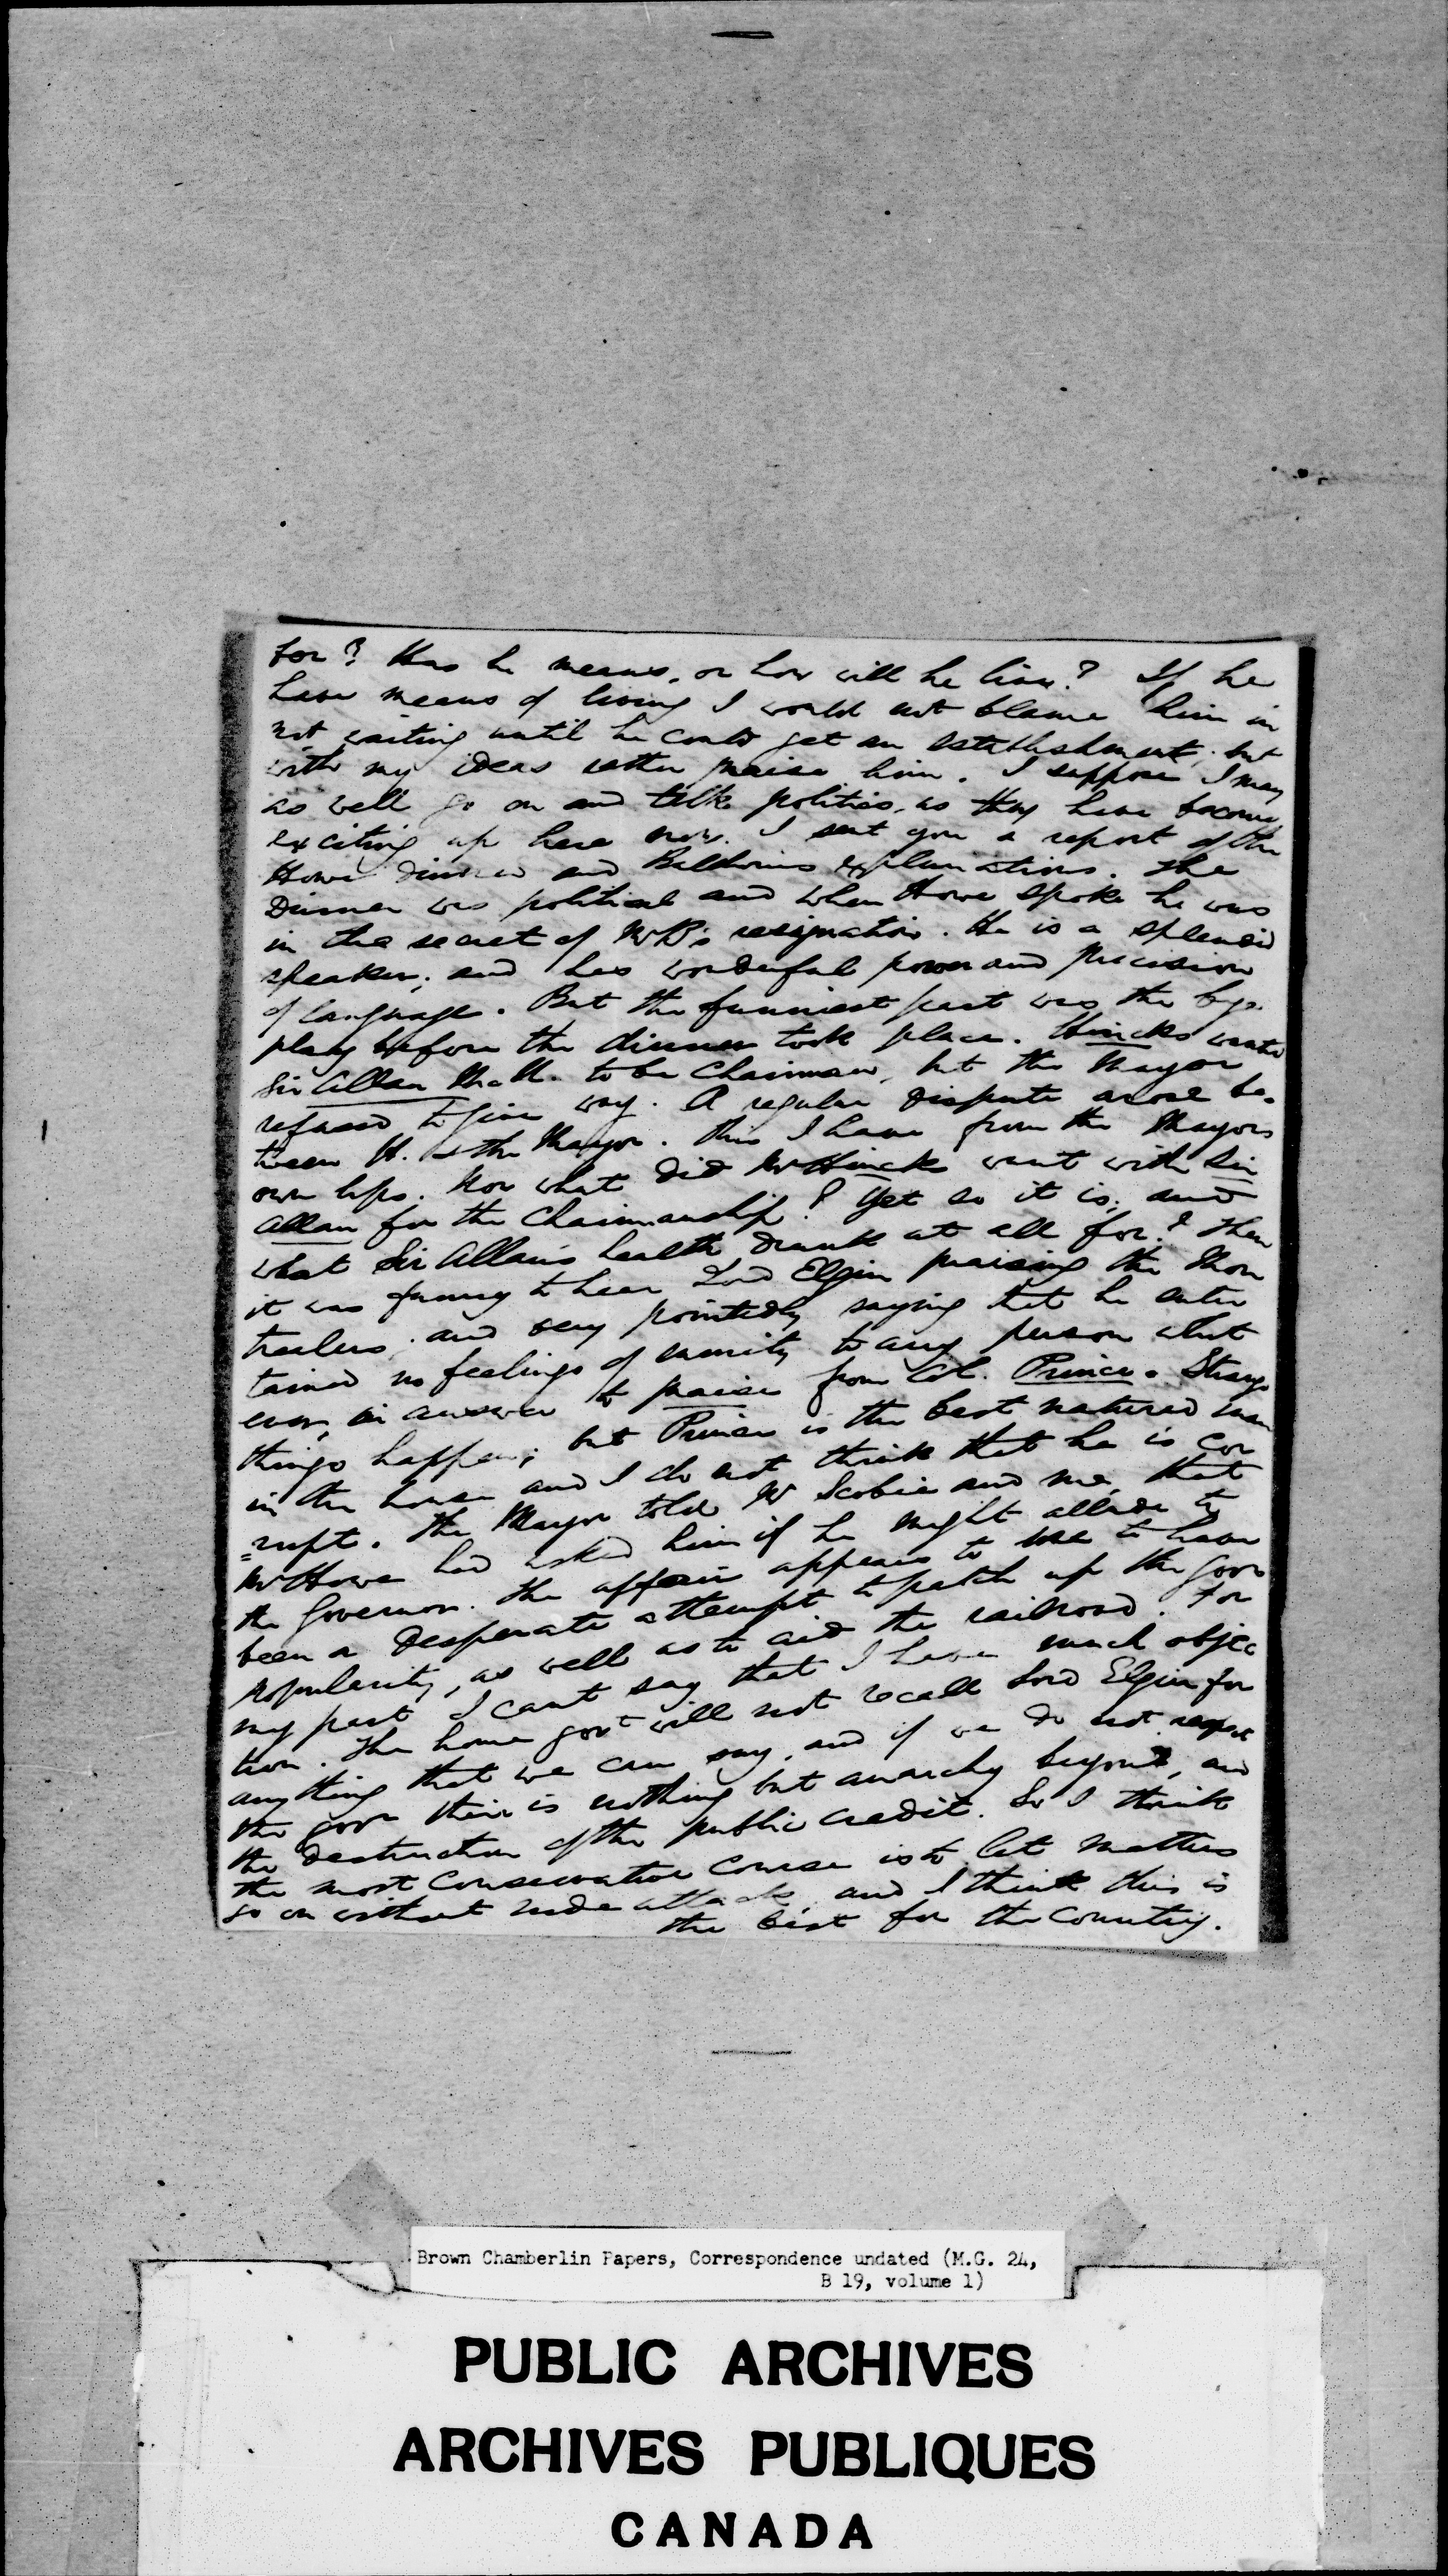 for? Has he means, or how will he live? If he
have means of living I would not blame him in
not waiting until he could get an establishment; but
with my ideas rather praise him. I suppose I may
as well go on and talk politics, as they have become
exciting up here now. I sent you a report of the
Howe dinner and Baldwins explanations. The
Dinner was political and when Howe spoke he was
in the secret of Mr B's resignation. He is a splendid
speaker; and has wonderful power and precision
of language. But the funniest part was the bye
play before the dinner took place. Hincks wanted
Sir Allan McN. to be Chairman, but the Mayor
refused to give way. A regular dispute arose be-
tween H. & the Mayor. This I have from the Mayors
own lips. Now what did Mr Hincks want with Sir
Allan for the Chairmanship? Yet so it is; and
what Sir Allan's health drunk at all for? Then
it was funny to hear Lord Elgin praising the Mon
trealers, and very pointedly saying that he enter
tained no feelings of enmity to any person what
ever, in answer to praise from Col. Prince. Strange
things happen; but Prince is the best natured man
in the house and I do not think that he is cor
=rupt. The Mayor told Mr Scobie and me, that
Mr Howe had asked him if he might allude to
the Governor. The affair appears to me to have
been a desperate attempt to patch up the govr
popularity, as well as to aid the railroad. For
my part I cant say that I have much objec
tion. The home govt will not recall Lord Elgin for
anything that we can say, and if we do not respect
the govr their is nothing but anarchy beyond, and
the destruction of the public credit. So I think
the most Conservative course is to let matters
go on without rude attacks, and I think this is
the best for the Country.
Brown Chamberlin Papers, Correspondence undated (M.G. 24,
B 19, volume 1)
PUBLIC ARCHIVES
ARCHIVES PUBLIQUES
CANADA